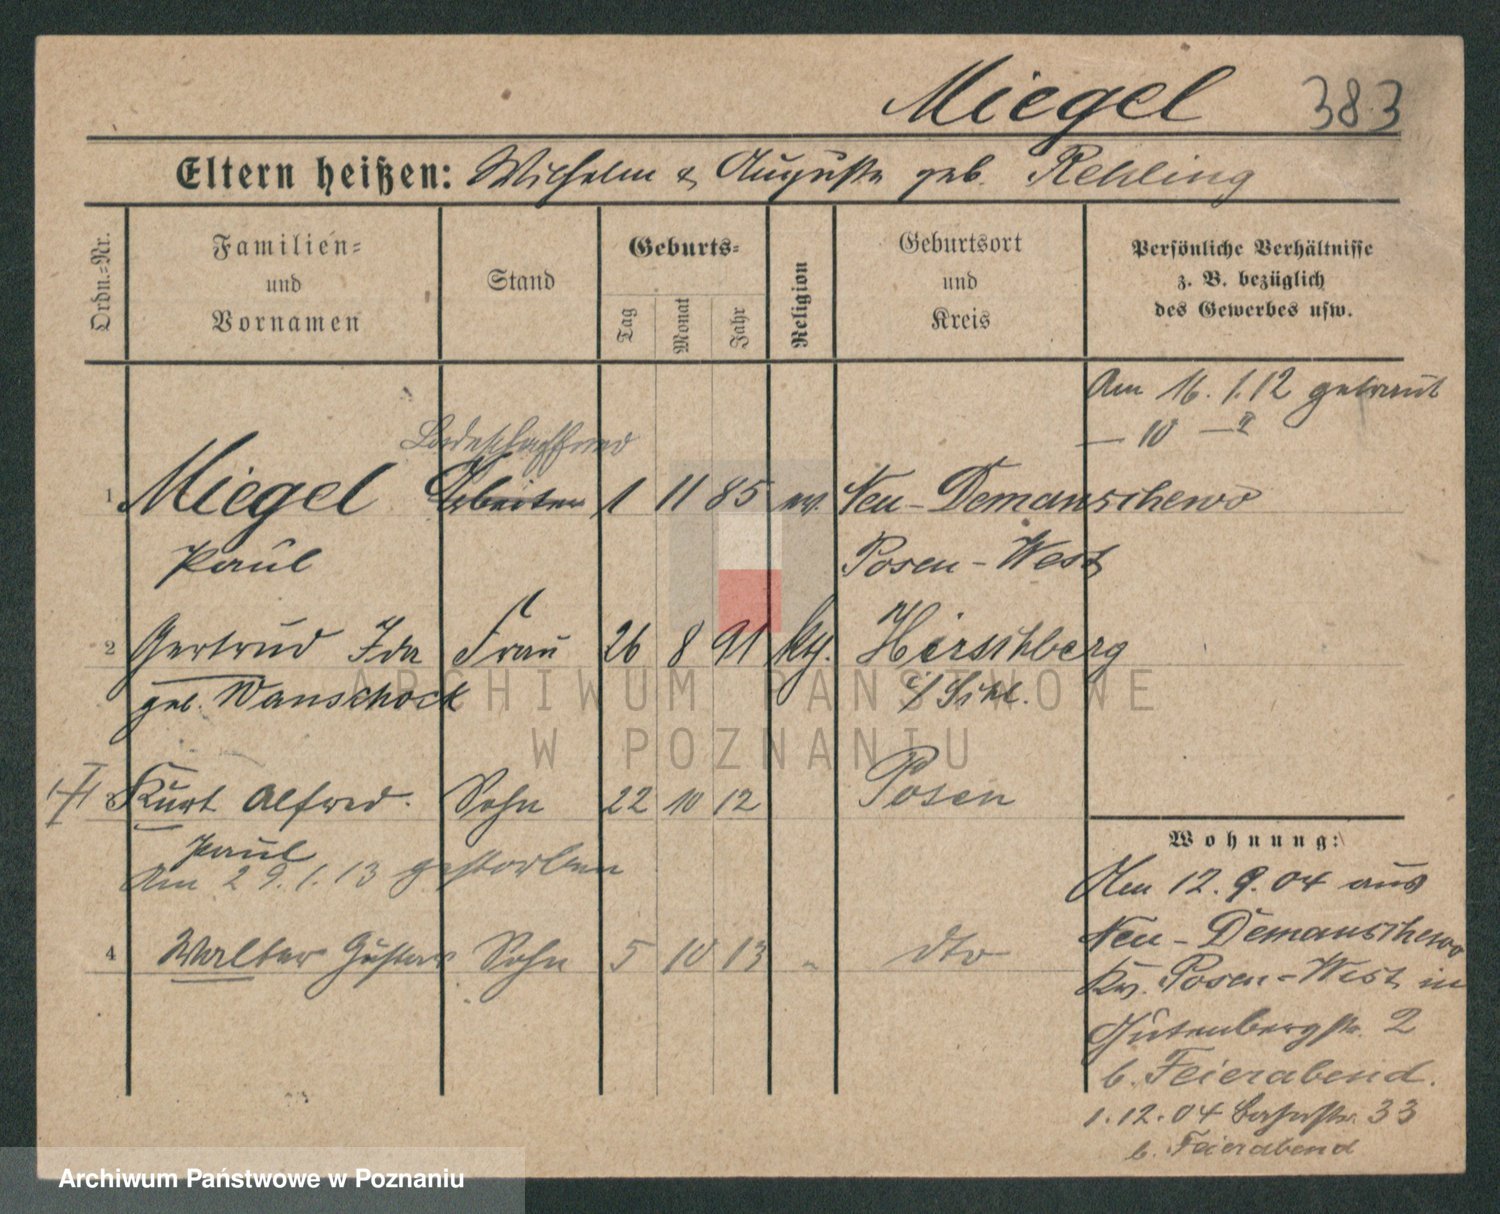 Miegel 383
Eltern heißen: Wilhelm & Auguste geb. Rehling
Ordn.=Nr.
Familien=
und
Vornamen
Stand
Geburts=
Tag
Monat
Jahr
Religion
Geburtsort
und
Kreis
Persönliche Verhältnisse
z. B. bezüglich
des Gewerbes usw.
Am 16. 1. 12 getraut
— 10 — II
Ladeschaffner
1 Miegel Arbeiter 1 11 85 ev. Neu-Demanschewo
Paul Posen-West
2 Gertrud Ida Frau 26 8 91 kth. Hirschberg
geb. Wanschock i/Schl.
3 Kurt Alfred Sohn 22 10 12 Posen
Paul
Am 29. 1. 13 gestorben
4 Walter Gustav Sohn 5 10 13 " dto
Wohnung:
Am 12. 9. 04 aus
Neu-Demanschewo
Kr. Posen-West in
Gutenbergstr. 2
b. Feierabend.
1. 12. 04 33
b. Feierabend
ARCHIWUM PAŃSTWOWE
W POZNANIU
Archiwum Państwowe w Poznaniu